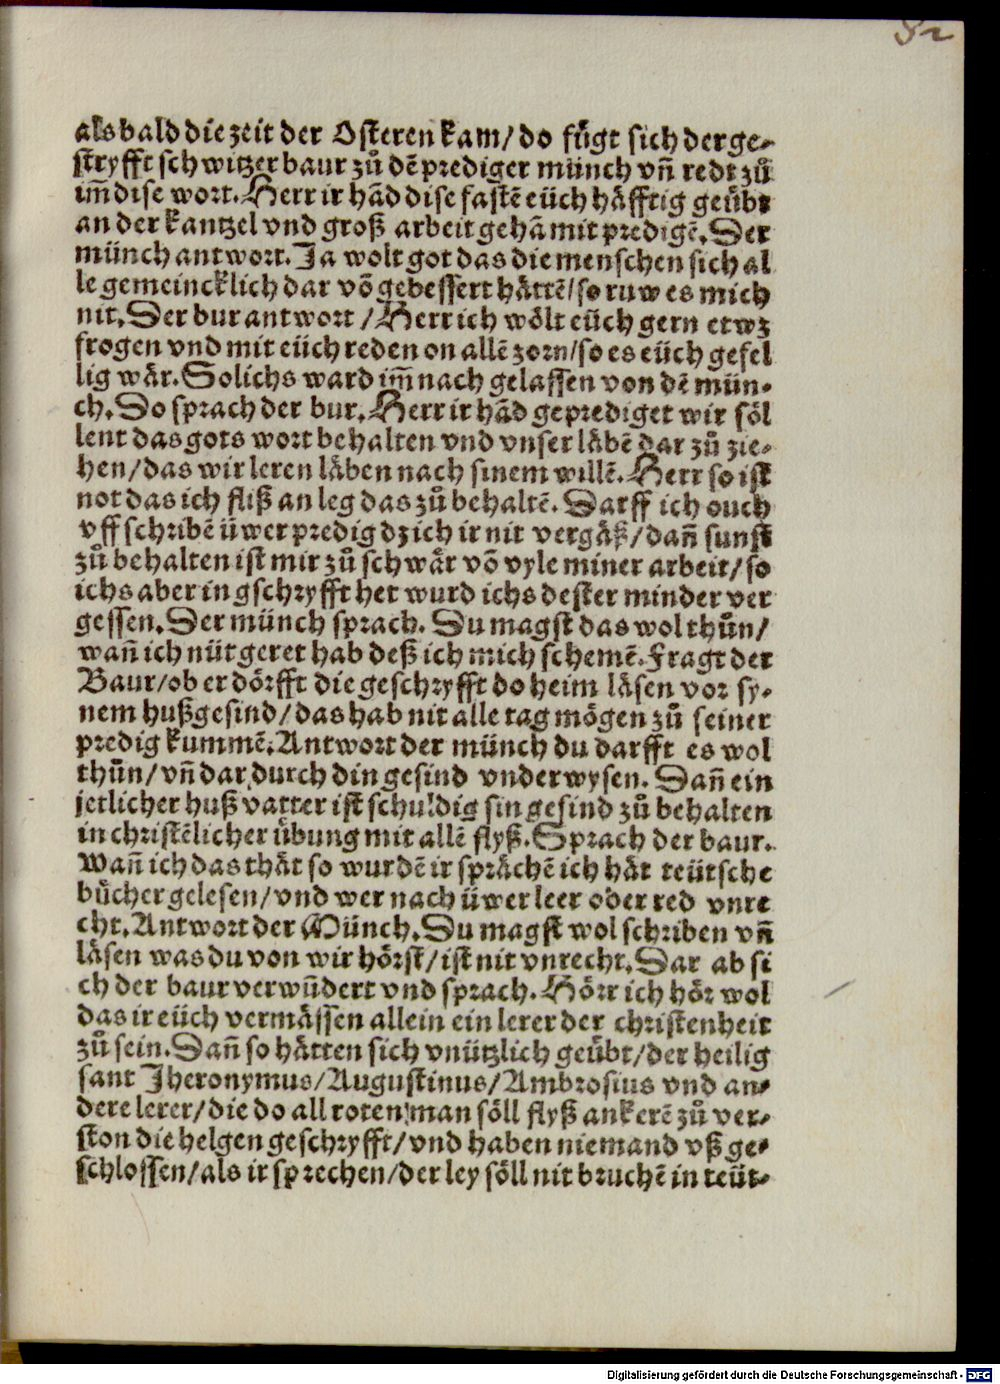 82
als bald die zeit der Osteren kam/ do fůgt sich der ge-
stryfft schwitzer baur zů dē prediger münch vñ redt zů
im̄ dise wort. Herr ir hād dise fastē eüch häfftig geübt
an der kantzel vnd groß arbeit gehā mit predigē. Der
münch antwort. Ja wolt got das die menschen sich al
le gemeincklich dar vō gebessert hättē/ so ruw es mich
nit. Der bur antwort / Herr ich wölt eüch gern etwz
frogen vnd mit eüch reden on allē zorn/ so es eüch gefel
lig wär. Solichs ward im̄ nach gelassen von dē mün-
ch. Do sprach der bur. Herr ir hād geprediget wir söl
lent das gots wort behalten vnd vnser läbē dar zů zie-
hen/ das wir leren läben nach sinem willē. Herr so ist
not das ich fliß an leg das zů behaltē. Darff ich ouch
vff schribē üwer predig dz ich ir nit vergäß/ dañ sunst
zů behalten ist mir zů schwår vō vyle miner arbeit/ so
ichs aber in gschryfft het wurd ichs dester minder ver
gessen. Der münch sprach. Du magst das wol thůn/
wañ ich nüt geret hab deß ich mich schemē. Fragt der
Baur/ ob er dörfft die geschryfft do heim läsen vor sy-
nem hußgesind/ das hab nit alle tag mögen zů seiner
predig kummē. Antwort der münch du darfft es wol
thůn/ vñ dar durch din gesind vnderwysen. Dañ ein
jetlicher huß vatter ist schuldig sin gesind zů behalten
in christēlicher übung mit allē flyß. Sprach der baur.
Wañ ich das thät so wurdē ir sprächē ich hät teütsche
bücher gelesen/ vnd wer nach üwer leer oder red vnre
cht. Antwort der Münch. Du magst wol schriben vñ
läsen was du von wir hörst/ ist nit vnrecht. Dar ab si
ch der baur verwūdert vnd sprach. Hörr ich hör wol
das ir eüch vermässen allein ein lerer der christenheit
zů sein. Dañ so hätten sich vnützlich geübt/ der heilig
sant Jheronymus/ Augustinus/ Ambrosius vnd an-
dere lerer/ die do all roten/ man söll flyß ankerē zů ver-
ston die helgen geschryfft/ vnd haben niemand vß ge-
schlossen/ als ir sprechen/ der ley söll nit bruchē in teüt-
Digitalisierung gefördert durch die Deutsche Forschungsgemeinschaft - DFG